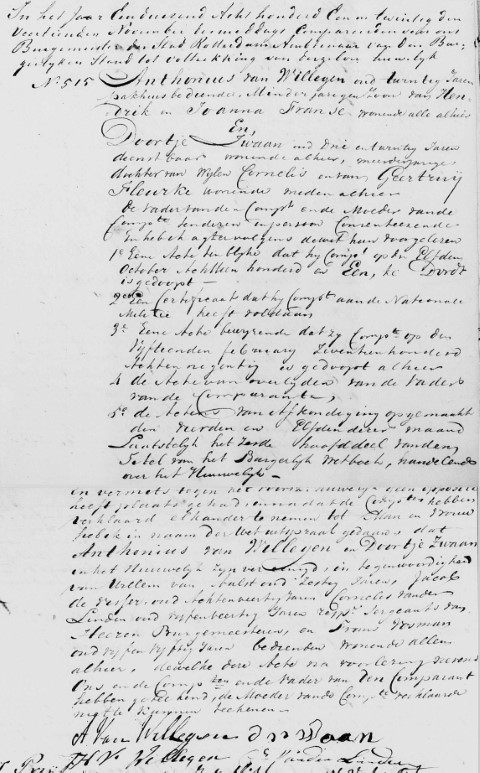 In het Jaar Eenduizend Acht honderd Een en twintig den
Veertienden November des middags Compareerden voor ons
Burgemeester der Stad Rotterdam Ambtenaar van den Bur-
gerlyken Stand tot voltrekking van deszelfs huwelyk
No 515 Anthonius van Willegen oud twintig Jaren
pakhuisbediende Minderjarige Zoon van Hen-
drik en Joanna Franse wonende alle alhier
En,
Doortje Zwaan oud Drie en twintig Jaren
dienstbaar wonende alhier, meerderjarige
dochter van wylen Cornelis en van Geertruy
Fleurke wonende mede alhier
de Vader van den Compt en de Moeder van de
Compte in persoon Consenteerende
En heb ik agtervolgens dewet hun voorgelezen
1e Eene Acte ten blyke dat hy Compt op den Elfden
October Achttien honderd en Een, te Dordt
is gedoopt —
2e Een Certificaat dat hy Compt aan de Nationale
Militie heeft voldaan
3e Eene Acte bewyzende dat zy Compte op den
Vyftienden february Zeventienhonderd
Achten negentig is gedoopt alhier
4 de Acte van overlyden van de Vader
van de Comparante,
5e de Acten van Afkondiging opgemaakt
den vierden en Elfden dezer maand
Laatstelyk het zesde hoofddeel van den
Titel van het Burgerlyk Wetboek, handelende
over het Huuwelyk —
en vermits tegen het voorsz: huwelyk geen oppositie
heeft plaats gehad, en nadat de Compten hebben
verklaard elkander te nemen tot Man en Vrouw
heb ik in naam der Wet uitspraak gedaan dat
Anthonius van Willegen en Doortje Zwaan
in het Huuwelyk zyn vereenigd, in tegenwoordigheid
van Willem van oud Zestig Jaren, Jacob
de oud Achtenveertig Jaren Cornelis van der
Linden oud vyfenveertig Jaren respt Sergeants van
Heeren Burgemeesteren, en Frans Vosman
oud vyfenvyftig Jaren bediende wonende allen
alhier, dewelke deze Acte na voorlezing nevens
Ons en de Compten en de Vader van den Comparant
hebben geteekend, de Moeder van de Compte verklaarde
niet te kunnen teekenen.
A van Willegen D Zwaan
H V Willegen C van der Linden